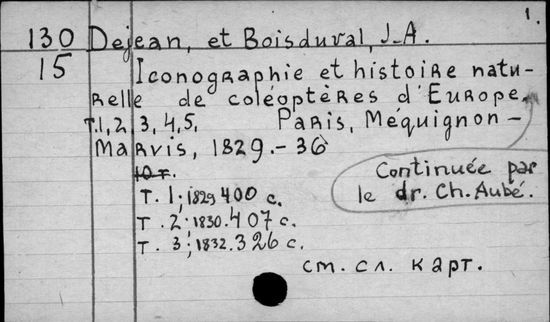 1.
130 Dejean, et Boisduval, J-A.
15 Iconographie et histoire natu-
relle de coléoptères d'Europe.
т.1, 2, 3, 4, 5, Paris, Méquignon-
Marvis, 1829.-36
10 т.
Continuée par
le dr. Ch. Aubé.
Т. 1; 1829 400 с.
Т. 2; 1830. 407 с.
Т. 3; 1832. 326 с.
см. сл. карт.